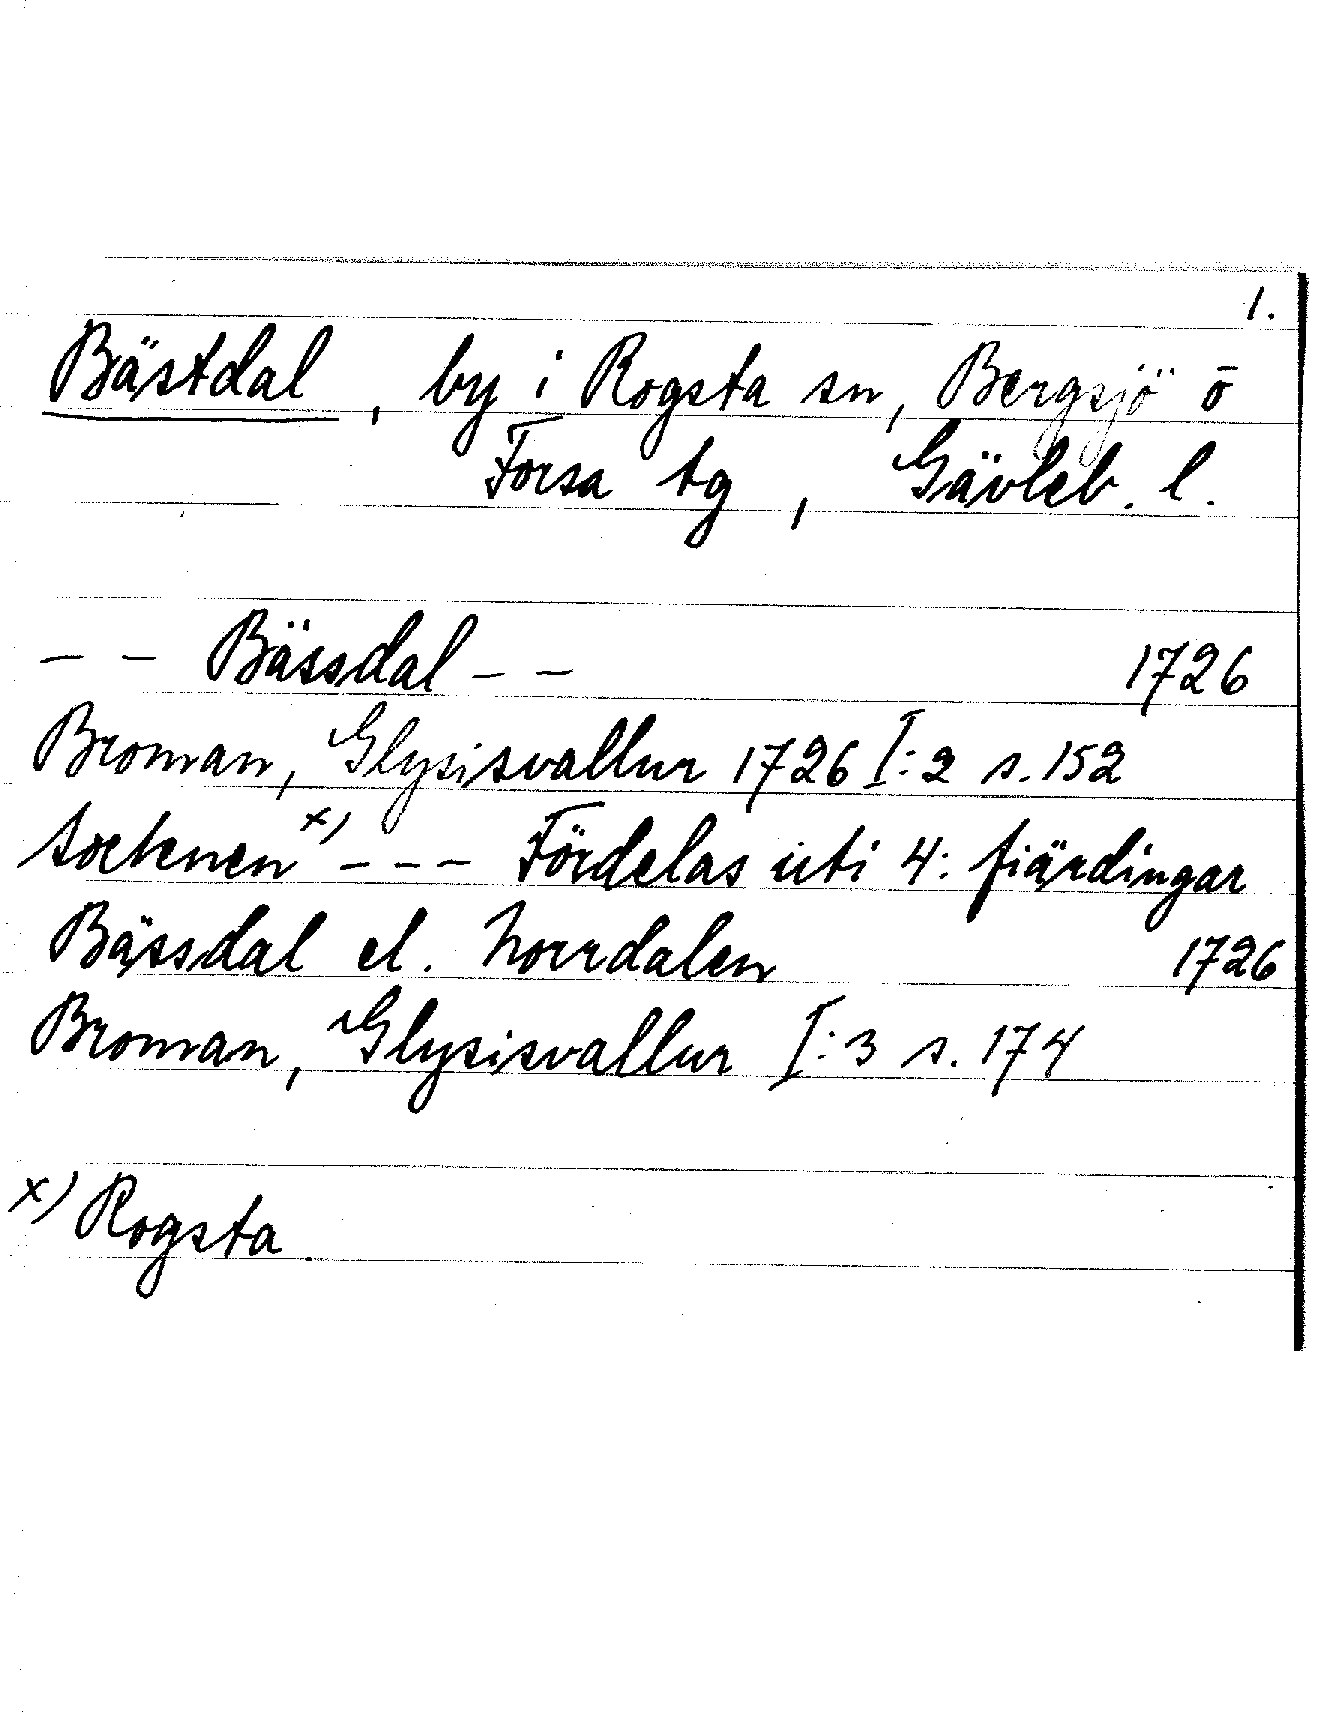 1.
Bästdal, by i Rogsta sn, Bergsjö o
Forsa tg, Gävleb. l.
– – Bässdal – – 1726
Broman, Glysisvallur 1726 I:2 s. 152
Sochenen x) – – – Fördelas uti 4: fiärdingar
Bässdal el. Norrdalen 1726
Broman, Glysisvallur I:3 s. 174
x) Rogsta